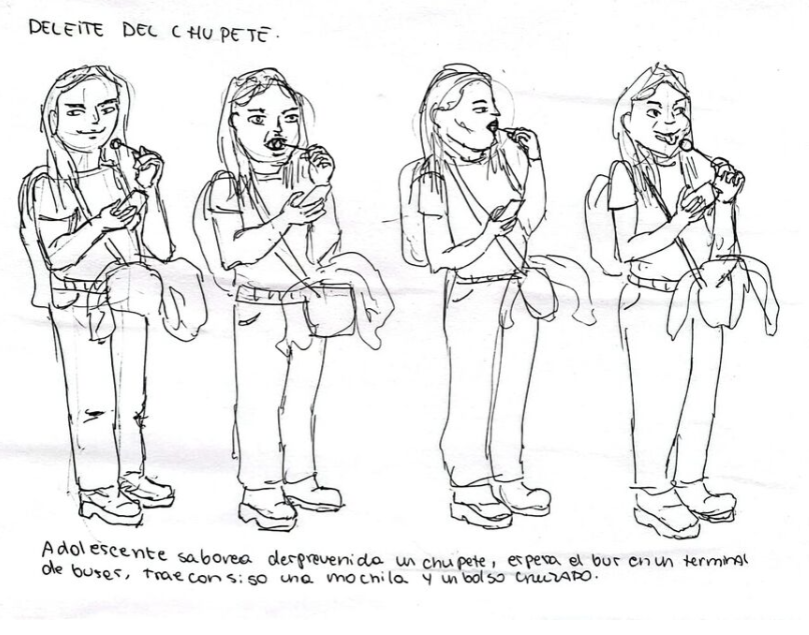 DELEITE DEL CHUPETE.
Adolescente saborea desprevenida un chupete, espera el bus en un terminal
de buses, trae consigo una mochila y un bolso CRUZADO.